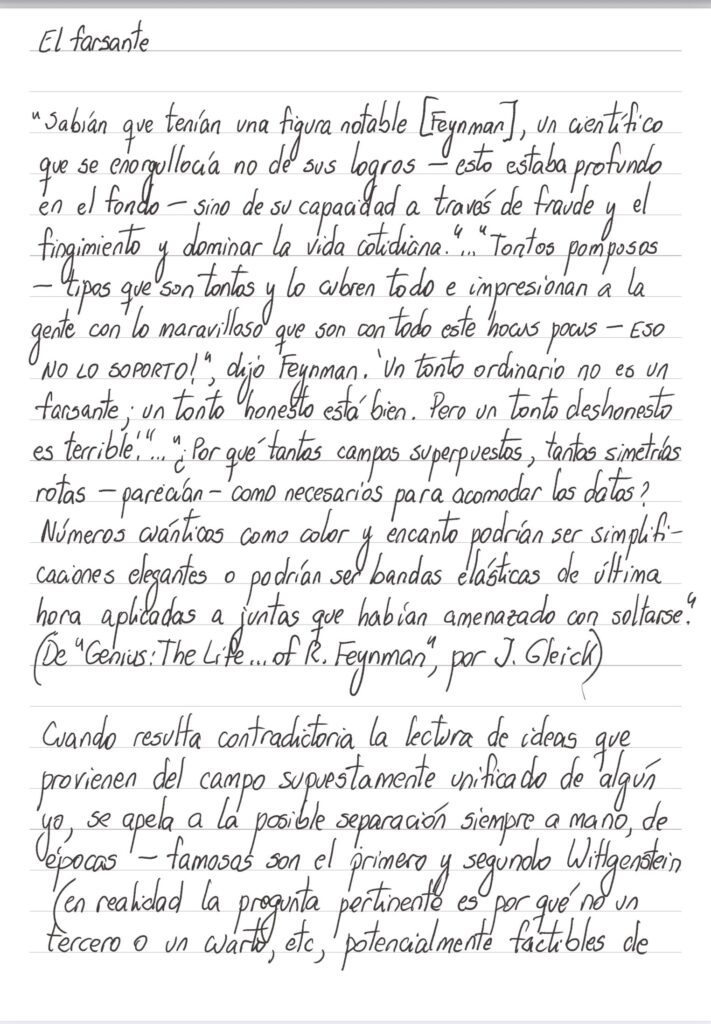 El farsante
"Sabían que tenían una figura notable [Feynman], un científico
que se enorgullocía no de sus logros – esto estaba profundo
en el fondo – sino de su capacidad a través de fraude y el
fingimiento y dominar la vida cotidiana."..."Tontos pomposos
– tipos que son tontos y lo cubren todo e impresionan a la
gente con lo maravilloso que son con todo este hocus pocus – ESO
NO LO SOPORTO!", dijo Feynman. 'Un tonto ordinario no es un
farsante; un tonto honesto está bien. Pero un tonto deshonesto
es terrible.'"..."¿Por qué tantos campos superpuestos, tantas simetrías
rotas – parecían – como necesarios para acomodar los datos?
Números cuánticos como color y encanto podrían ser simplifi-
caciones elegantes o podrían ser bandas elásticas de última
hora aplicadas a juntas que habían amenazado con soltarse."
(De "Genius: The Life... of R. Feynman", por J. Gleick)
Cuando resulta contradictoria la lectura de ideas que
provienen del campo supuestamente unificado de algún
yo, se apela a la posible separación siempre a mano, de
épocas – famosas son el primero y segundo Wittgenstein
(en realidad la pregunta pertinente es por qué no un
tercero o un cuarto, etc, potencialmente factibles de